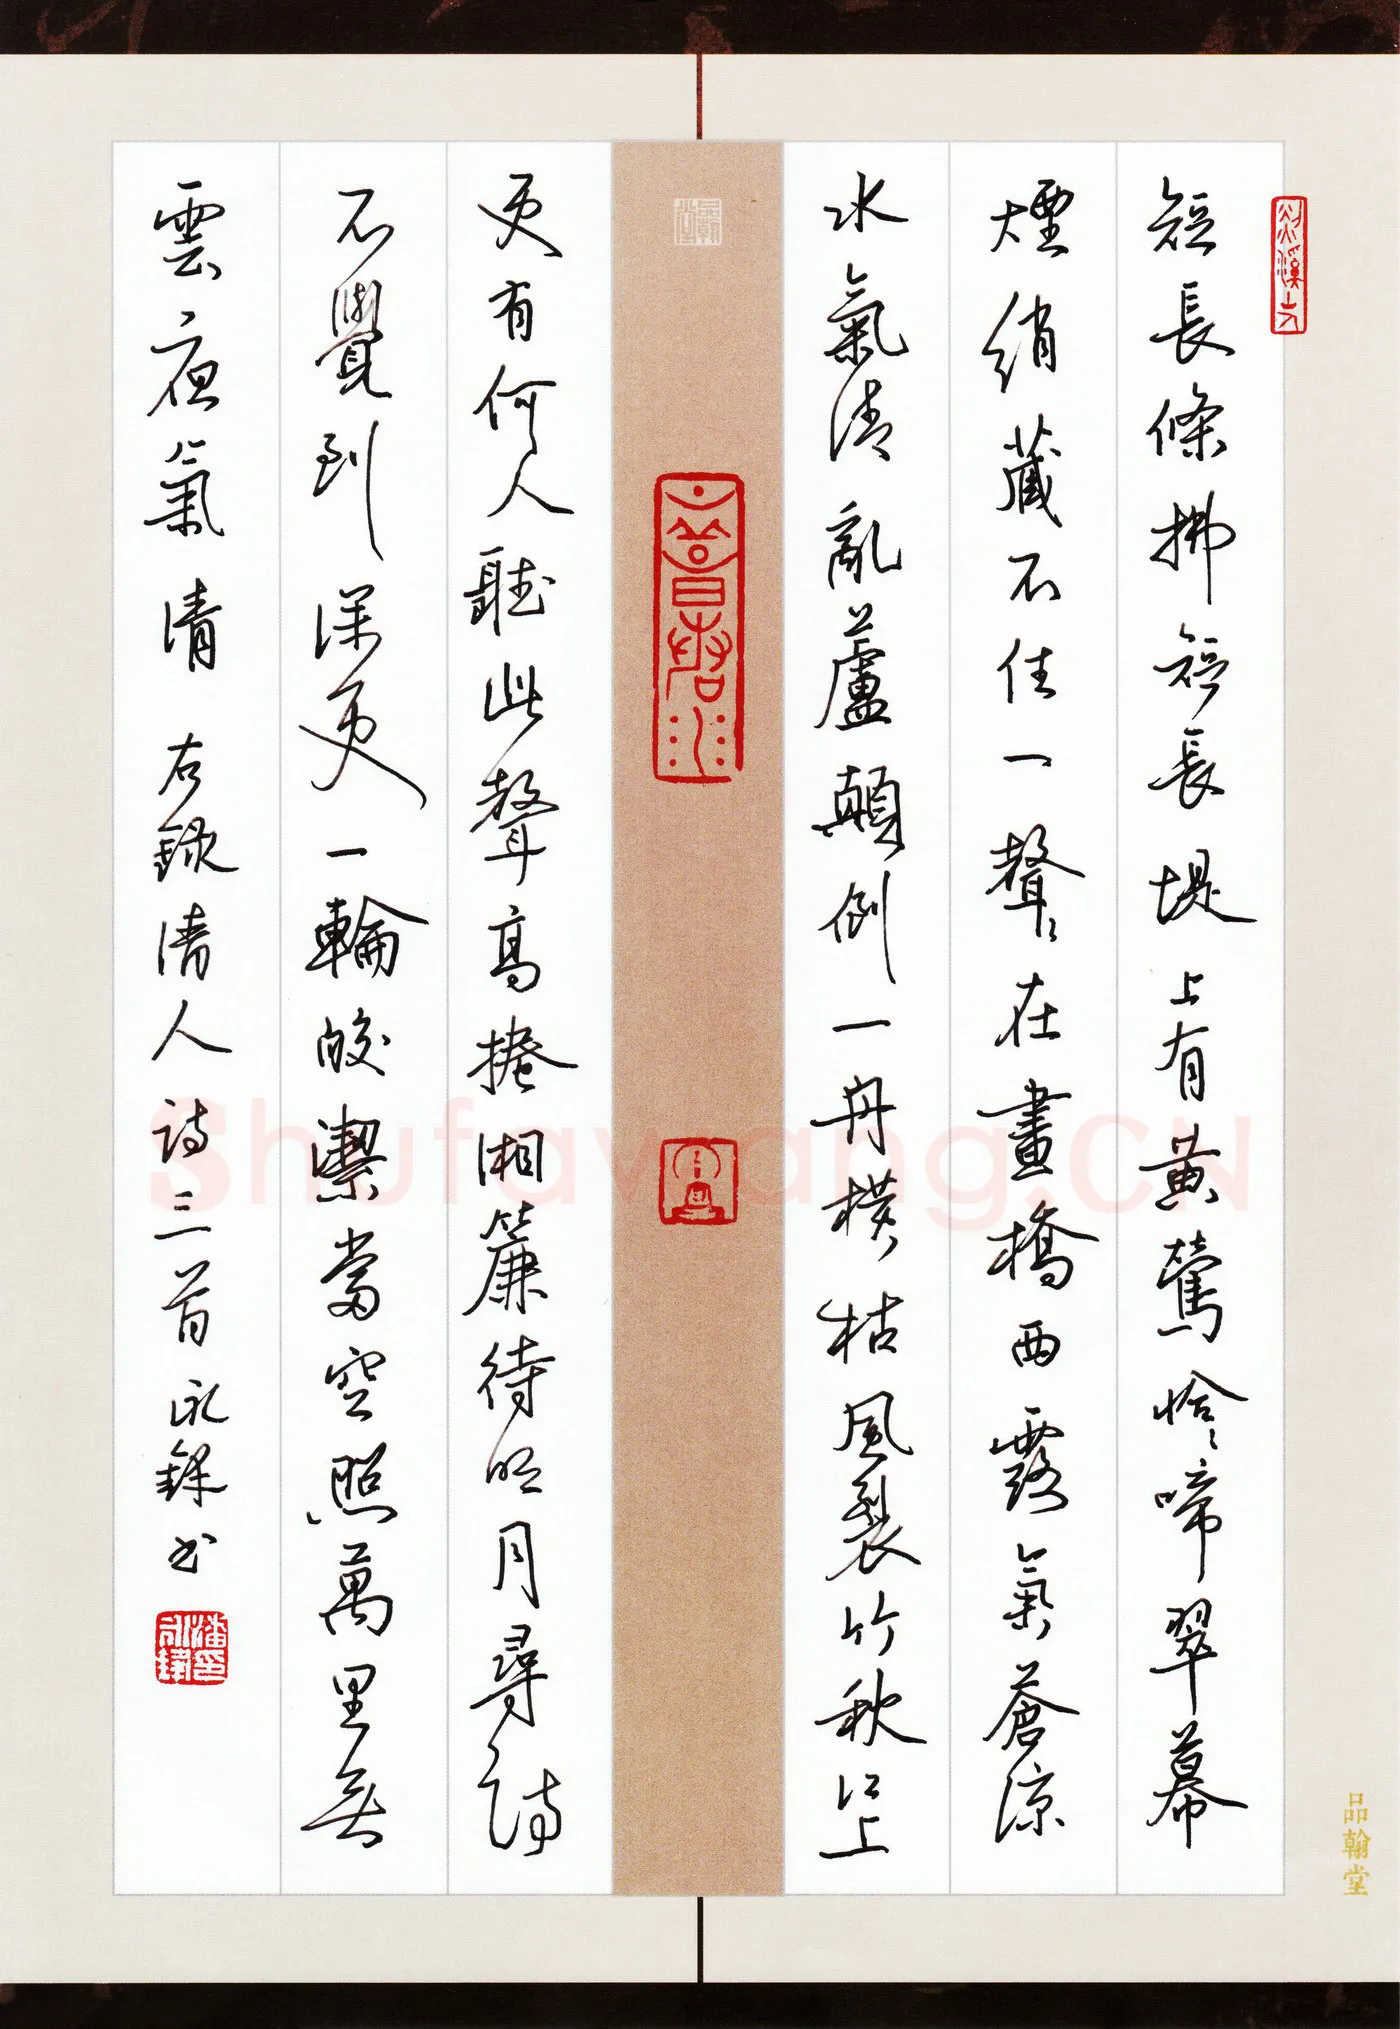 短長條拂短長堤上有黃鶯恰恰啼翠幕
煙綃藏不住一聲聲在畫橋西露氣蒼涼
水氣清亂蘆顛倒一舟橫枯風裂竹秋江上
更有何人聽此聲高捲湘簾待明月尋詩
不覺到深更一輪皎潔當空照萬里無
雲夜氣清 右錄清人詩三首 永鋒書
品翰堂
Shufawang.CN